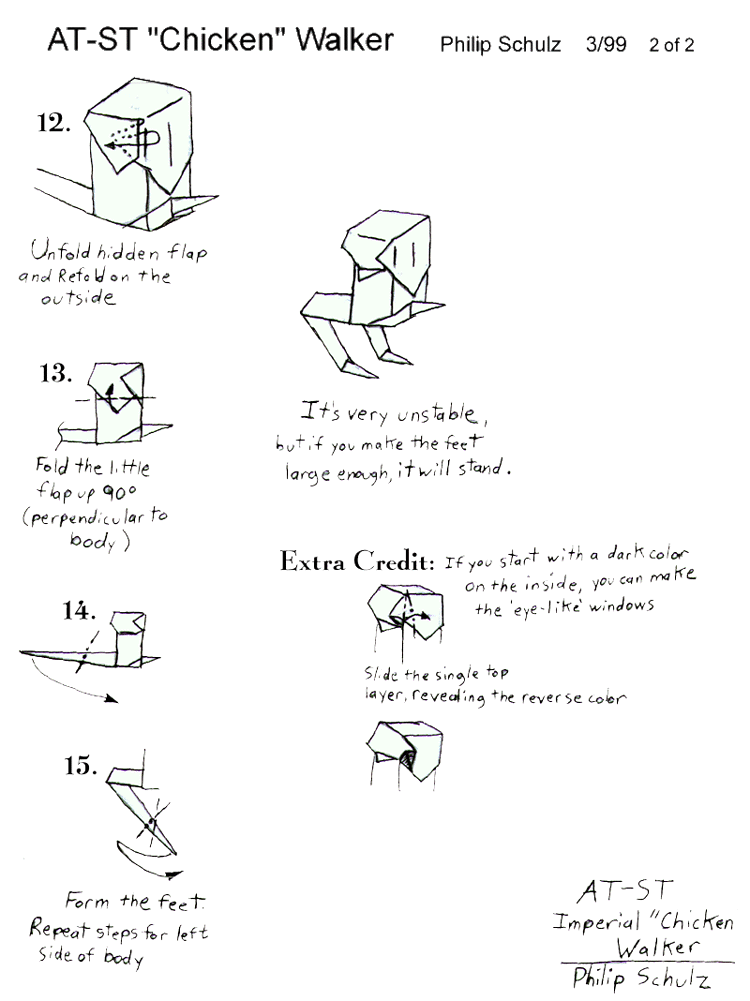 AT-ST "Chicken" Walker Philip Schulz 3/99 2 of 2
12.
Unfold hidden flap
and Refold on the
outside
13.
Fold the little
flap up 90°
(perpendicular to
body)
14.
15.
Form the feet.
Repeat steps for left
side of body
It's very unstable,
but if you make the feet
large enough, it will stand.
Extra Credit: If you start with a dark color
on the inside, you can make
the 'eye-like' windows
Slide the single top
layer, revealing the reverse color
AT-ST
Imperial "Chicken
Walker
Philip Schulz